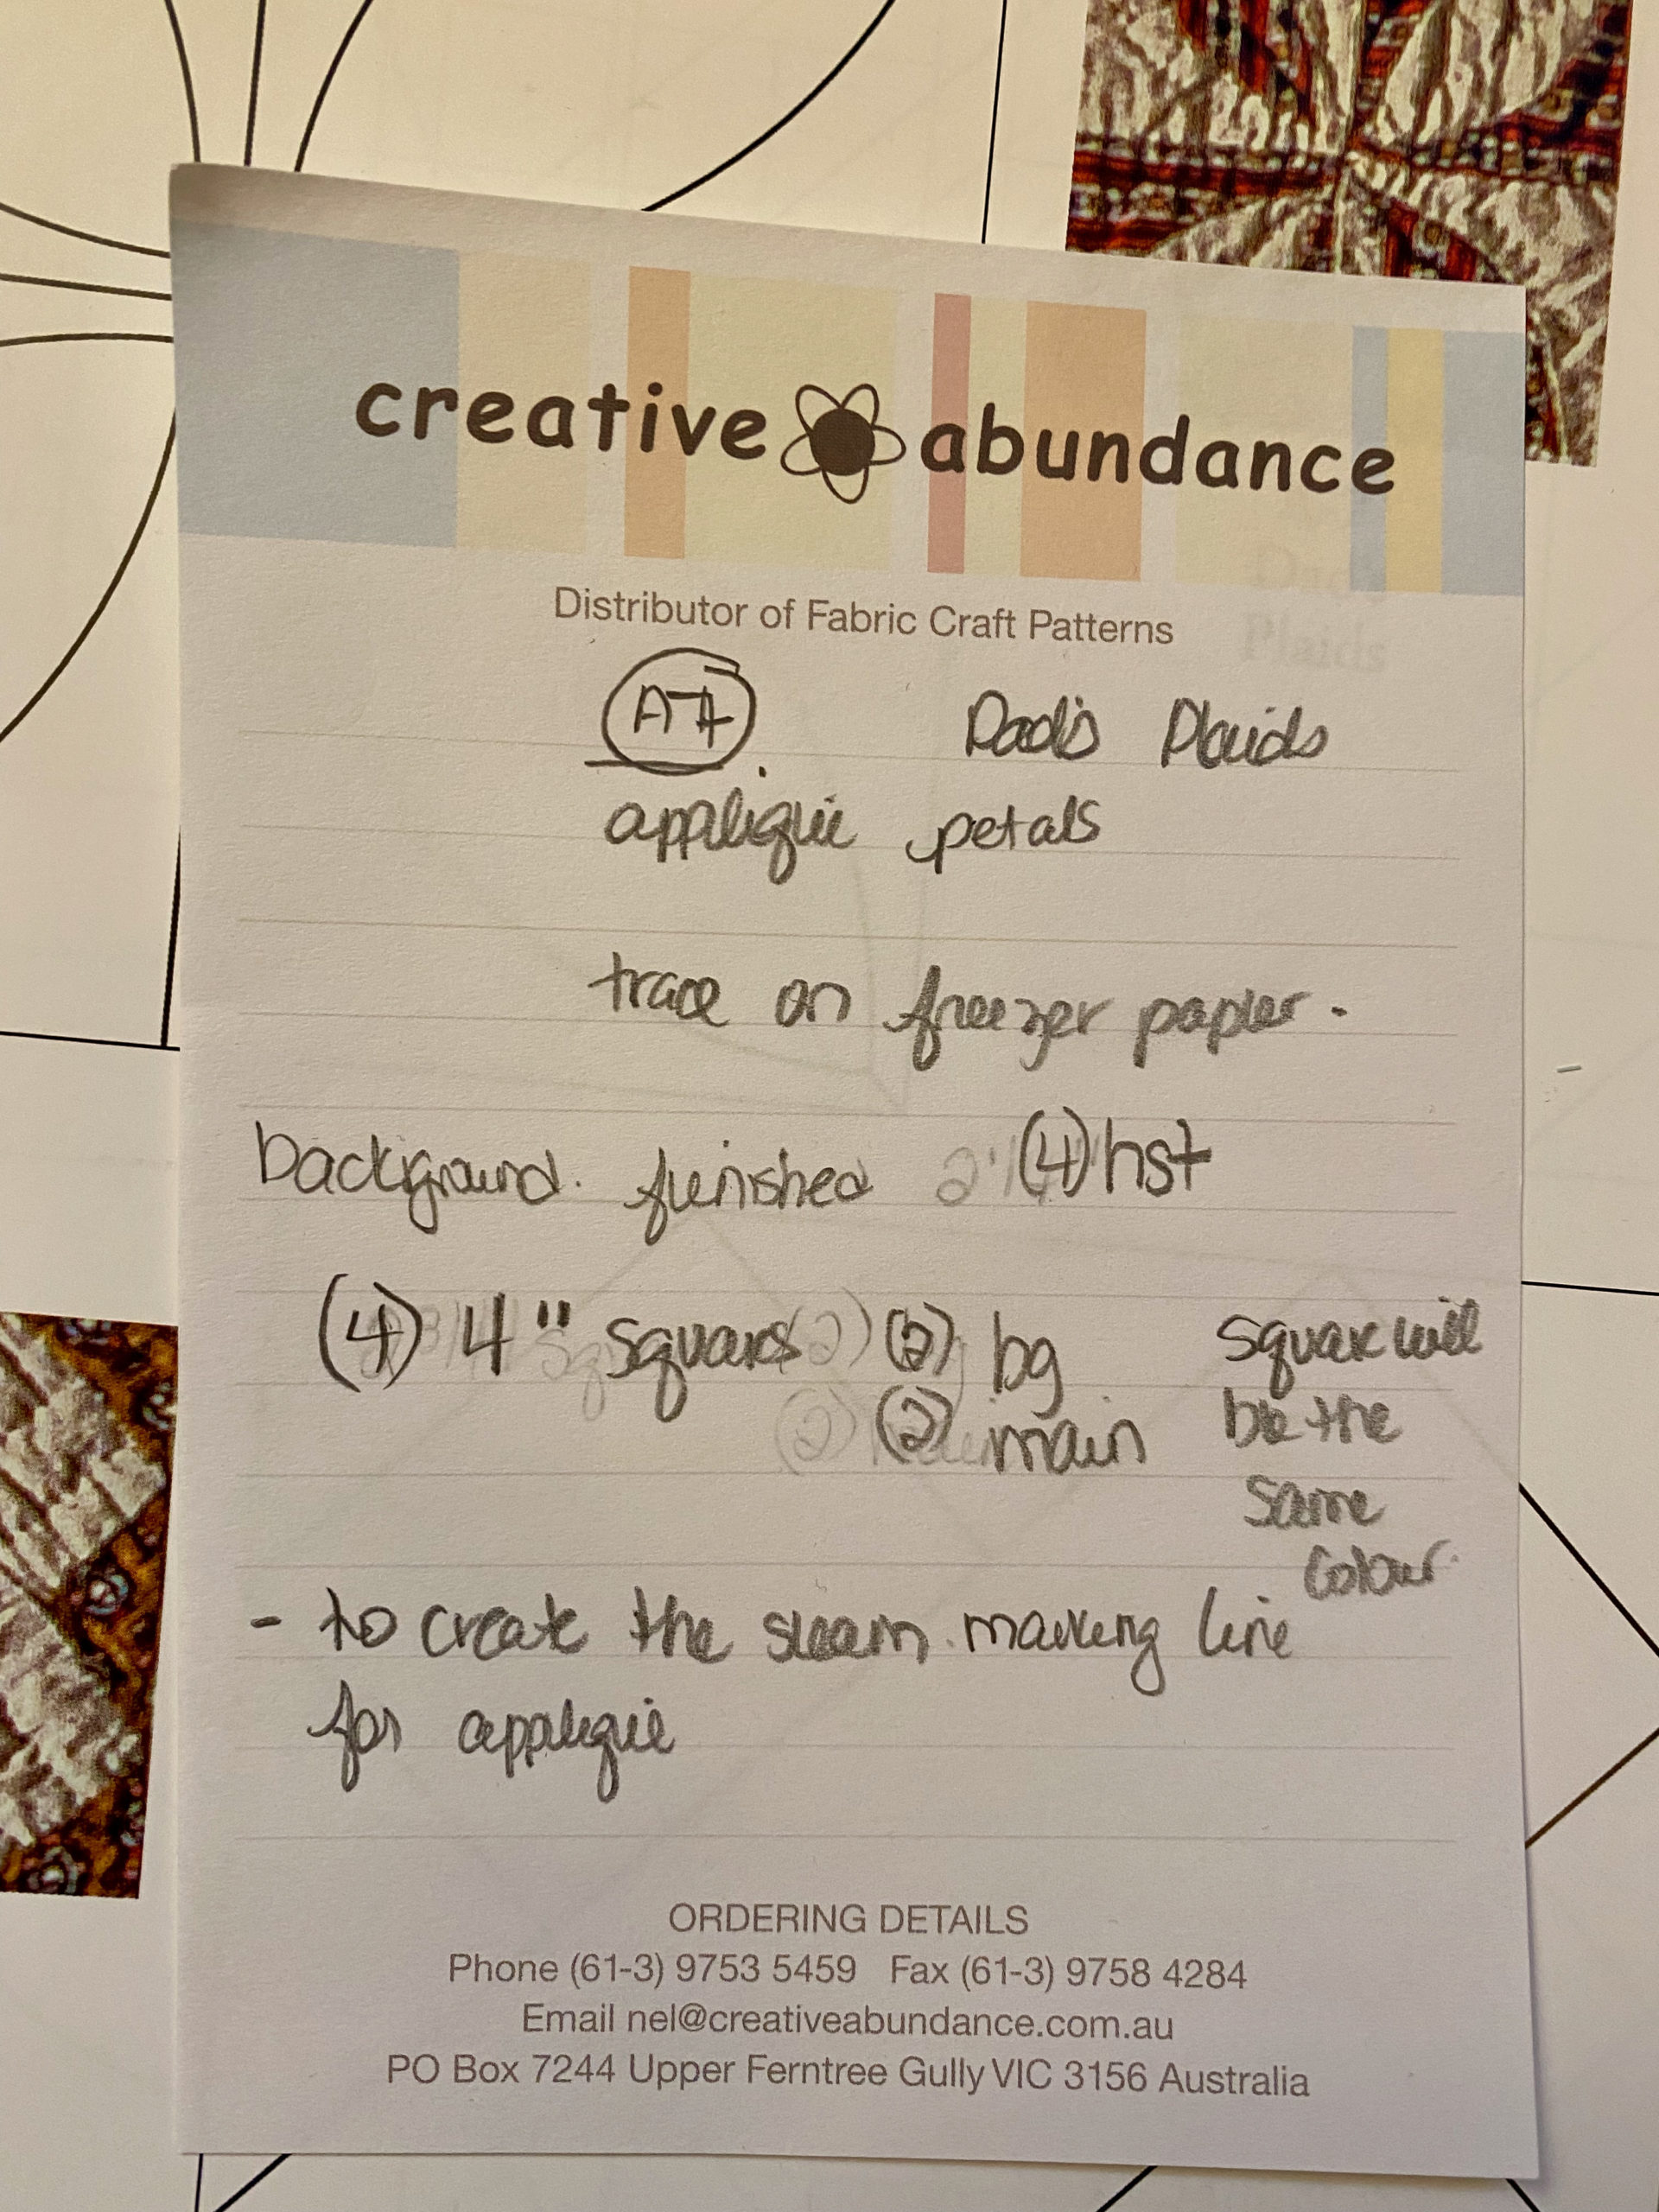 creative abundance
Distributor of Fabric Craft Patterns
A7 Dad's Plaids
appliquie petals
trace on freezer papier.
background. finished (4) hst
(4) 4" squares (2) bg
(2) main
square will
be the
same
colour.
- to create the steam marking line
for appliquie
ORDERING DETAILS
Phone (61-3) 9753 5459 Fax (61-3) 9758 4284
Email nel@creativeabundance.com.au
PO Box 7244 Upper Ferntree Gully VIC 3156 Australia